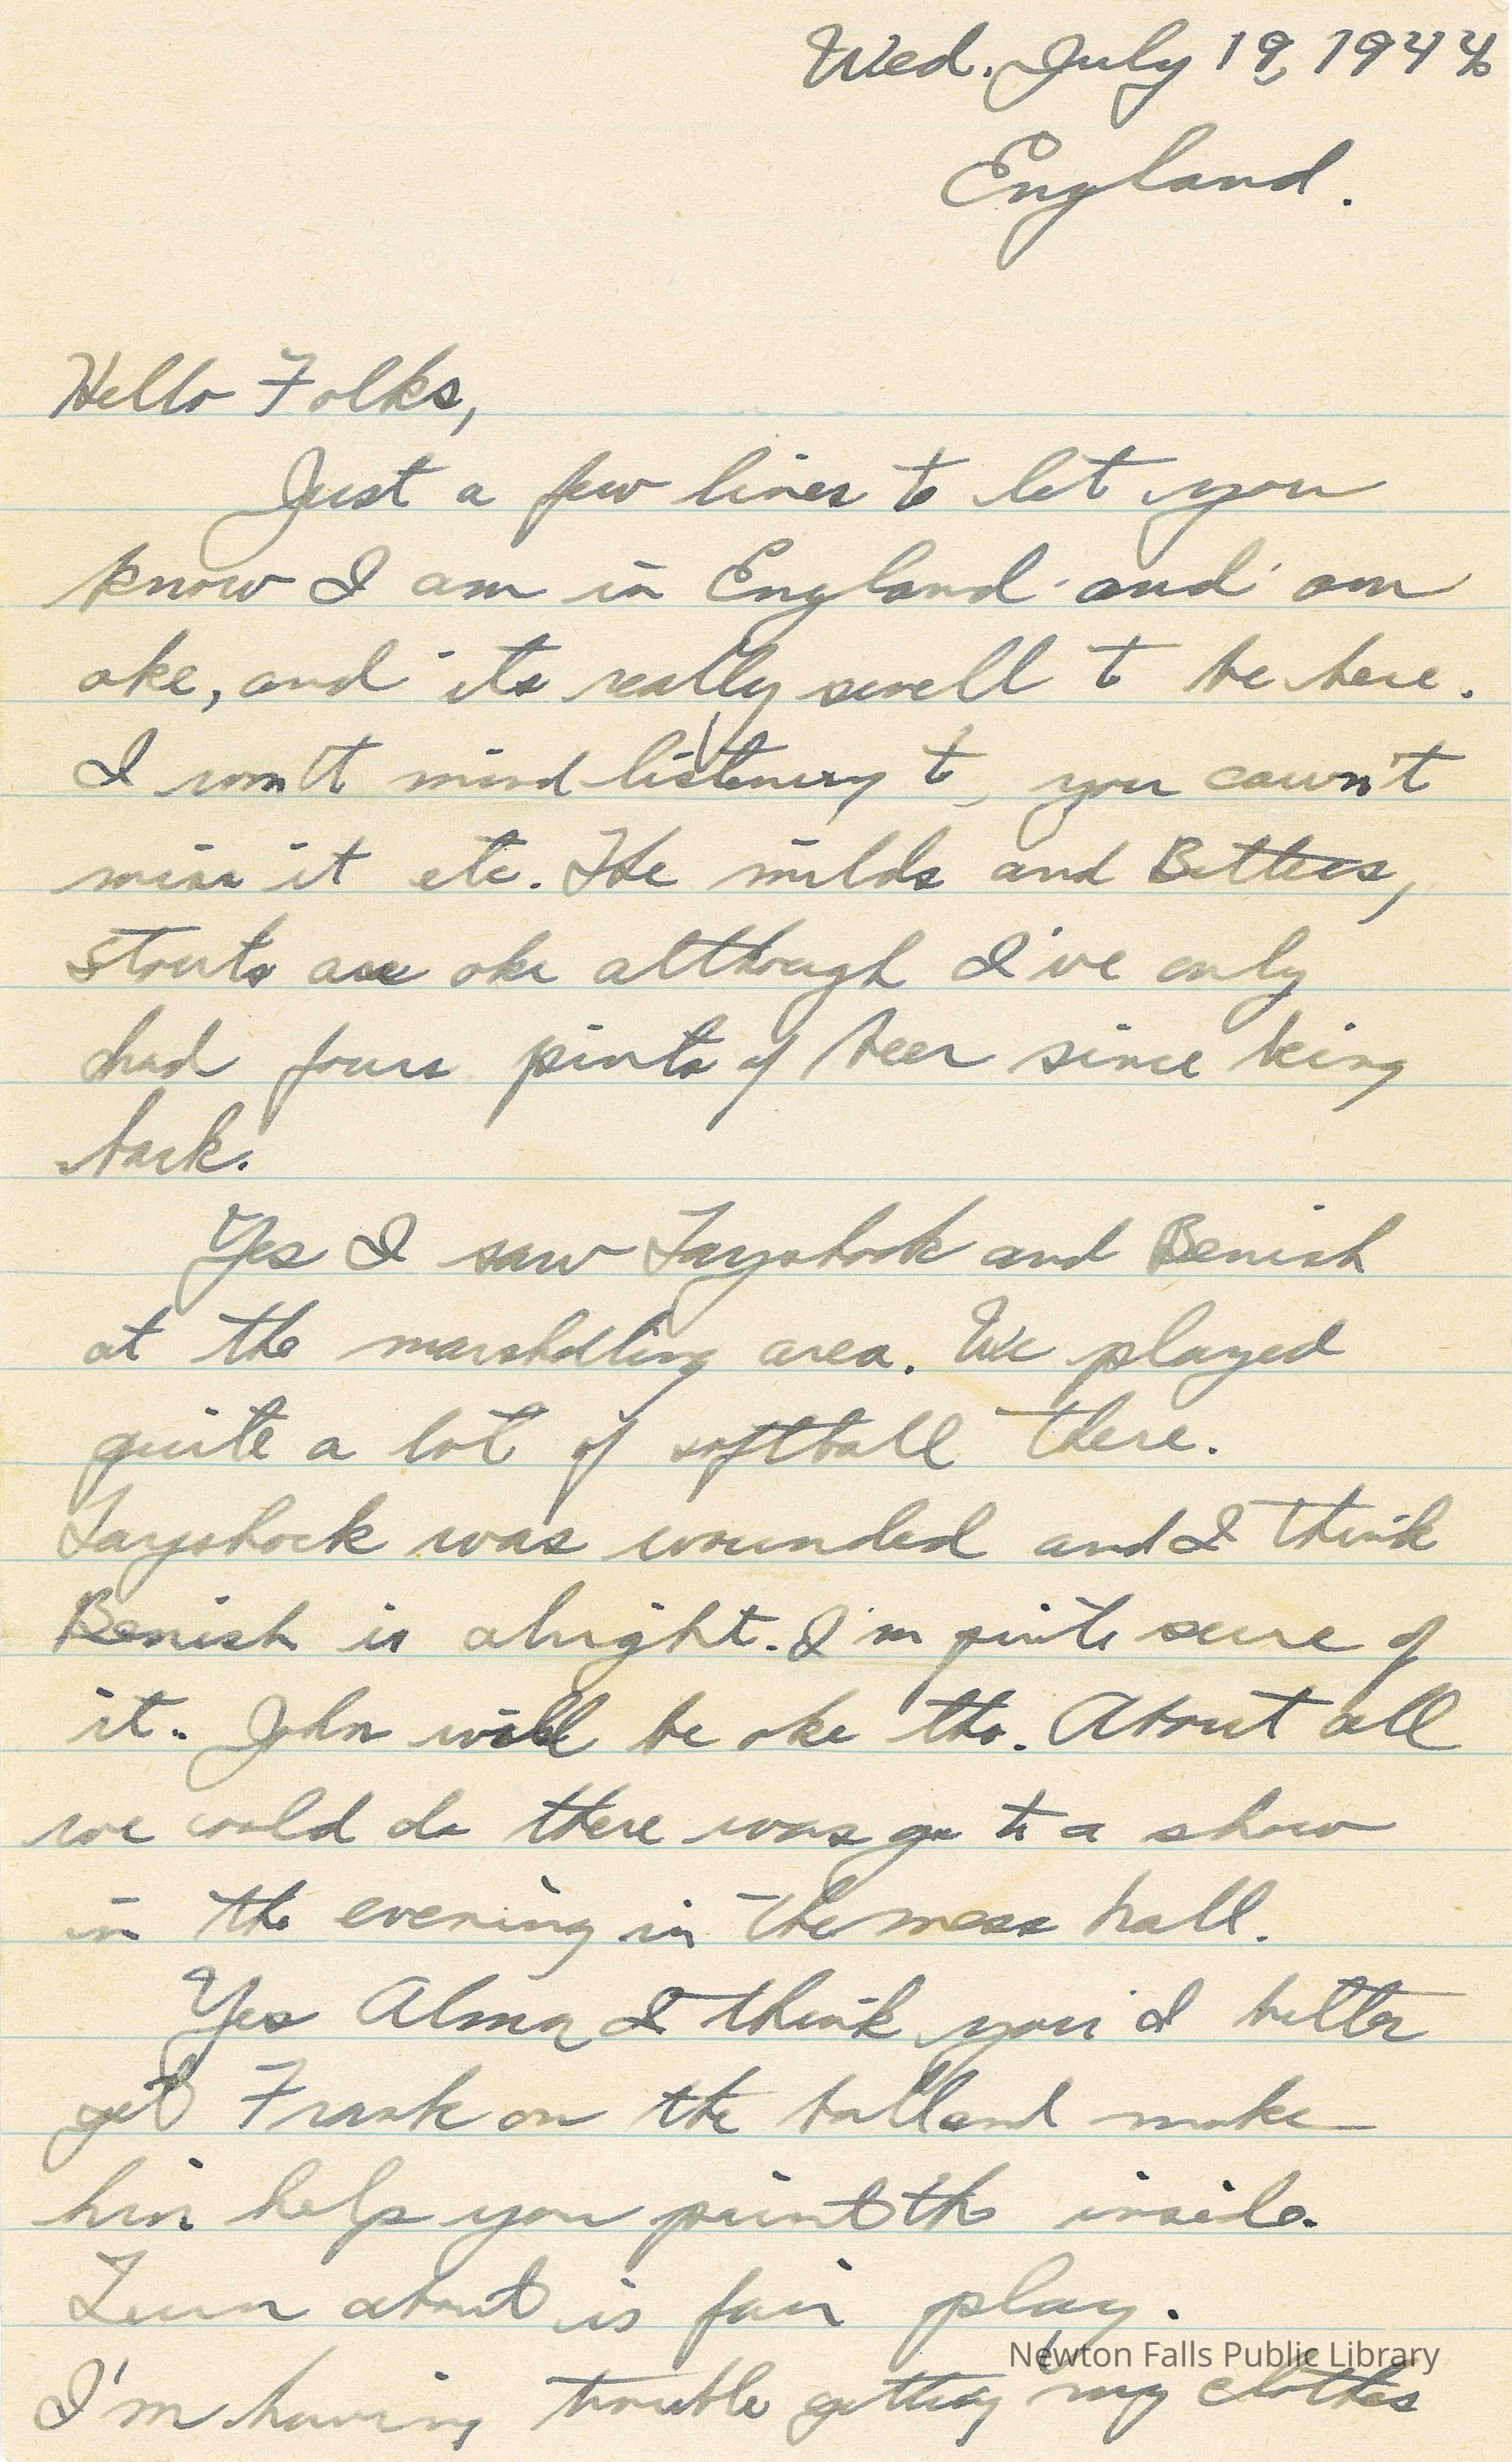 Wed. July 19, 1944
England.
Hello Folks,
Just a few lines to let you
know I am in England and am
oke, and its really swell to be here.
I won't mind listening to, you cawn't
miss it etc. The milds and Bitters,
stouts are oke although I've only
had four pints of beer since being
back.
Yes I saw Tayshock and Benish
at the marshalling area. We played
quite a lot of softball there.
Tayshock was wounded and I think
Benish is alright. I'm quite sure of
it. John will be oke tho. About all
we could do there was go to a show
in the evening in the mess hall.
Yes Alma I think you'd better
get Frank on the ball and make
him help you paint the inside.
Turn about is fair play.
Newton Falls Public Library
I'm having trouble getting my clothes